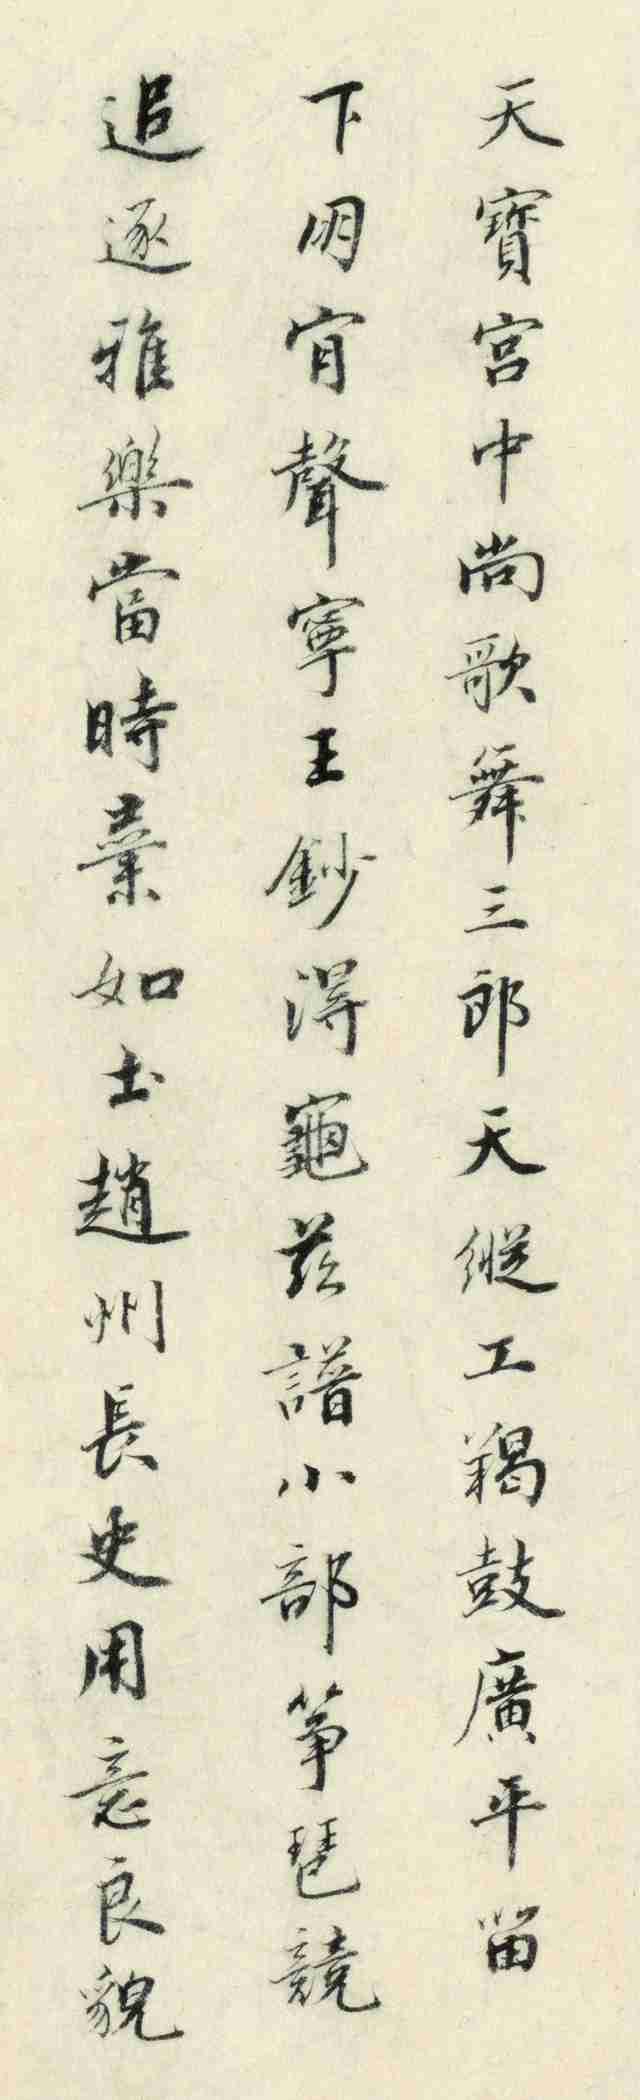 天寶宮中尚歌舞三郎天縱工羯鼓廣平留
下朙宵聲寧王鈔得龜茲譜小部箏琶競
追逐雅樂當時棄如土趙州長史用意良貌